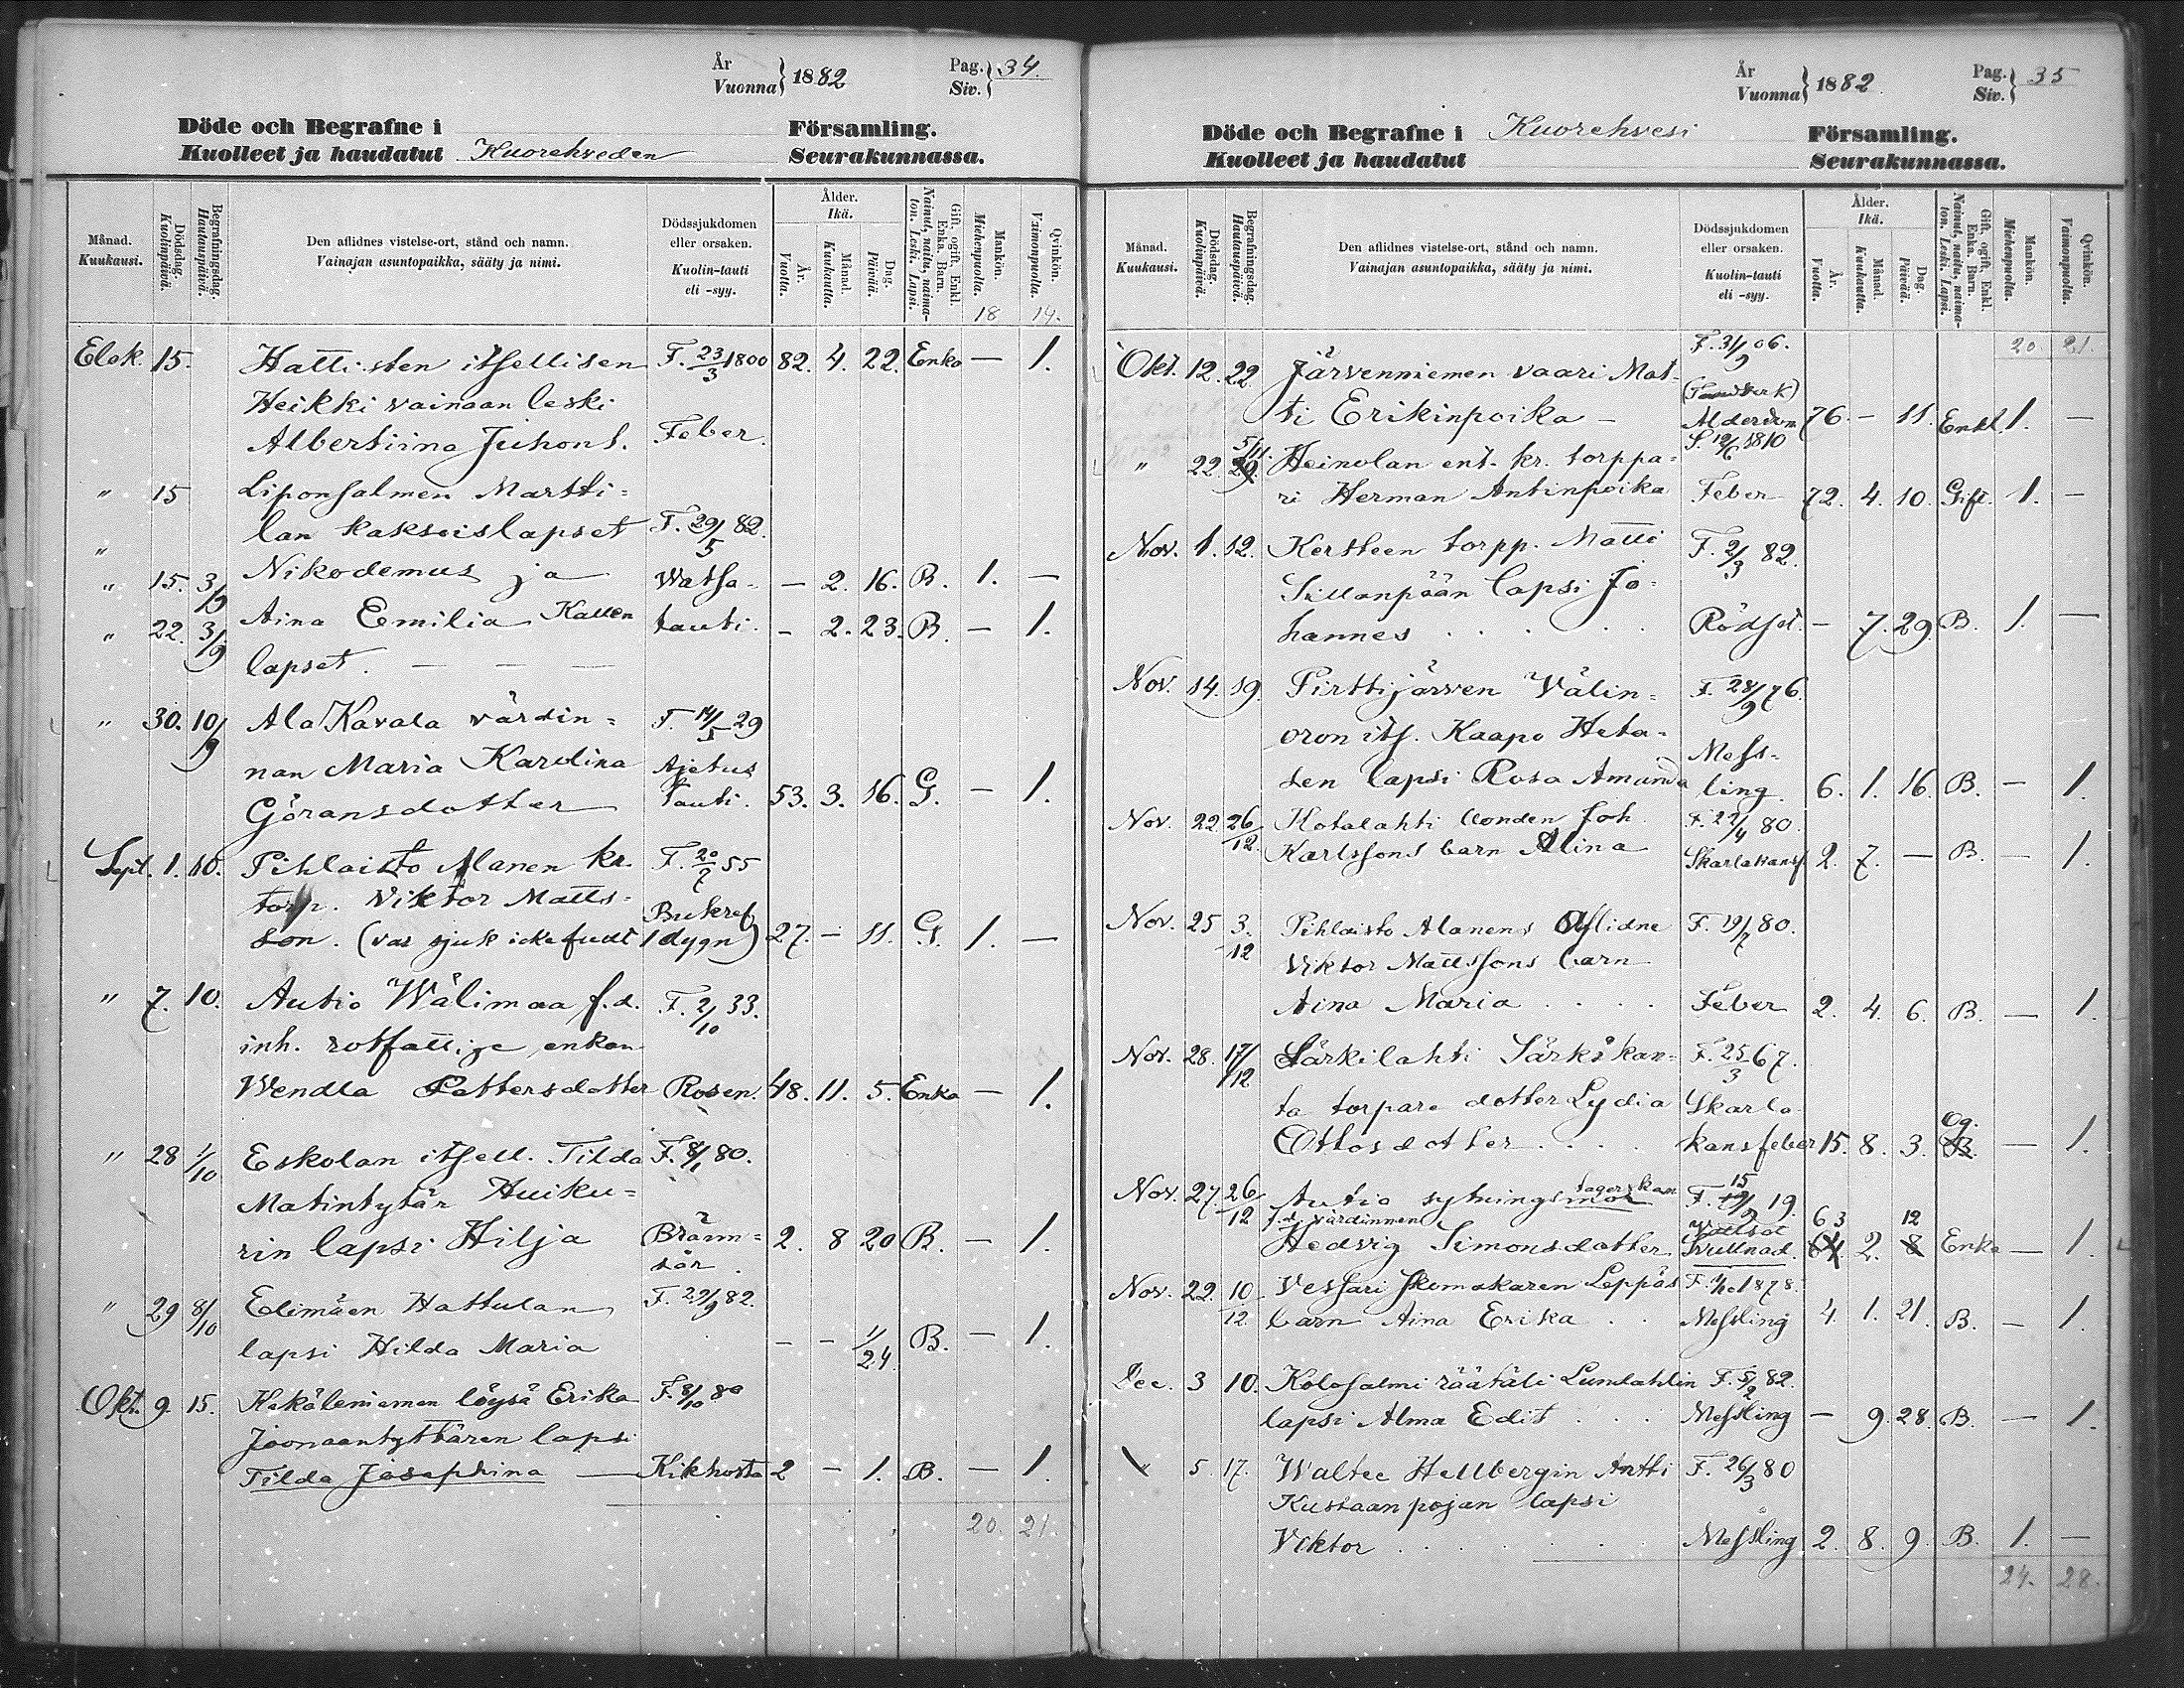 År Vuonna } 1882 Pag. Siv. } 34.
Döde och Begrafne i Församling.
Kuolleet ja haudatut Kuorehveden Seurakunnassa.
Månad. Kuukausi.
Dödsdag. Kuolinpäivä.
Begrafningsdag. Hautauspäivä.
Den aflidnes vistelse-ort, stånd och namn.
Vainajan asuntopaikka, sääty ja nimi.
Dödssjukdomen eller orsaken.
Kuolin-tauti eli -syy.
Ålder. Ikä.
År. Vuotta.
Månad. Kuukautta.
Dag. Päivää.
Gift, ogift, Enkl. Enka. Barn.
Nainut, naitu, naimaton. Leski. Lapsi.
Mankön. Miehenpuolta.
Qvinkön. Vaimonpuolta.
18 14.
Elok. 15. Hattisten itsellisen F. 23/3 1800 82. 4. 22. Enka — 1.
Heikki vainaan leski
Albertiina Juhont. Feber.
" 15 Liponsalmen Martti=
" lan kaksoislapset F. 29/5 82.
" 15. 3/9 Nikodemus ja Watsa- — 2. 16. B. 1. —
" 22. 3/9 Aina Emilia Kallen tauti. — 2. 23. B. — 1.
lapset. — — —
" 30. 10/9 Ala Kavala värdin= F. 14/5 29
nan Maria Karolina Ajetus
Göransdotter tauti. 53. 3. 16. G. — 1.
Sept. 1. 10. Pihlaisto Alanen kr. F. 20/7 55
torp. Viktor Matts= Bukref
son. (var sjuk icke fullt 1 dygn) 27. — 11. G. 1. —
" 7. 10. Autio Wälimaa f.d. F. 2/10 33.
inh. rotfattige enkan
Wendla Pettersdotter Rosen. 48. 11. 5. Enka — 1.
" 28 1/10 Eskolan itsell. Tilda F. 8/1 80.
Matintytär Huiku=
rin lapsi Hilja Bränn=sår. 2. 8 20 B. — 1.
" 29 8/10 Elimäen Hattulan F. 29/9 82.
lapsi Hilda Maria — — 1/24. B. — 1.
Okt. 9. 15. Kekäleniemen löysä Erika F. 8/10 80
Joonaantyttären lapsi
Tilda Josephina — Kikhosta 2 — 1. B. — 1.
20. 21.
År Vuonna } 1882. Pag. Siv. } 35
Döde och Begrafne i Kuorehvesi Församling.
Kuolleet ja haudatut Seurakunnassa.
Månad. Kuukausi.
Dödsdag. Kuolinpäivä.
Begrafningsdag. Hautauspäivä.
Den aflidnes vistelse-ort, stånd och namn.
Vainajan asuntopaikka, sääty ja nimi.
Dödssjukdomen eller orsaken.
Kuolin-tauti eli -syy.
Ålder. Ikä.
År. Vuotta.
Månad. Kuukautta.
Dag. Päivää.
Gift, ogift, Enkl. Enka. Barn.
Nainut, naitu, naimaton. Leski. Lapsi.
Mankön. Miehenpuolta.
Qvinkön. Vaimonpuolta.
20 21.
Okt. 12. 22 Järvenniemen vaari Mat- F. 31/9 06.
ti Erikinpoika — Alderdom 76. — 11. Enkl. 1. —
" 22. 29. 5/11. Heinolan ent. kr. torppa= S. 12/6 1810
ri Herman Antinpoika Feber 72. 4. 10. Gift. 1. —
Nov. 1. 12. Kertteen torpp. Matti F. 2/3 82.
Sillanpään lapsi Jo=
hannes . . . . Rödsot. — 7. 29. B. 1. —
Nov. 14. 19. Pirttijärven Välin= F. 28/9 76.
oron its. Kaapo Heta= Mess=
sen lapsi Rosa Amanda ling. 6. 1. 16. B. — 1.
Nov. 22. 26/12. Hotalahti bonden Joh. F. 22/4 80.
Karlssons barn Alina Skarlakansf 2. 7. — B. — 1.
Nov. 25 3./12 Pihlaisto Alanens aflidne F. 19/7 80.
Viktor Mattssons barn
Aina Maria . . . Feber 2. 4. 6. B. — 1.
Nov. 28. 17/12 Särkilahti Särkikan= F. 25/3 67.
ta torpare dotter Lydia Skarla
Ottosdotter . . . kansfeber 15. 8. 3. B. Og. — 1.
Nov. 27. 26/12 Autio sytningsmor tagerskan F. 15/9 19.
f.d. värdinnen 63 12
Hedvig Simonsdotter Vattsot Svullnad. 64. 2. 8 Enka — 1.
Nov. 22. 10/12. Vessari skomakaren Leppäs F. 1/10 1878.
barn Aina Erika . . Messling 4. 1. 21. B. — 1.
Dec. 3 10. Kolosalmi räätäli Lundahlin F. 5/2 82.
lapsi Alma Edit . . . Messling — 9. 28. B. — 1.
" 5. 17. Waltee Hellbergin Antti F. 26/3 80
Kustaanpojan lapsi
Viktor . . . . . Messling 2. 8. 9. B. 1. —
24. 28.